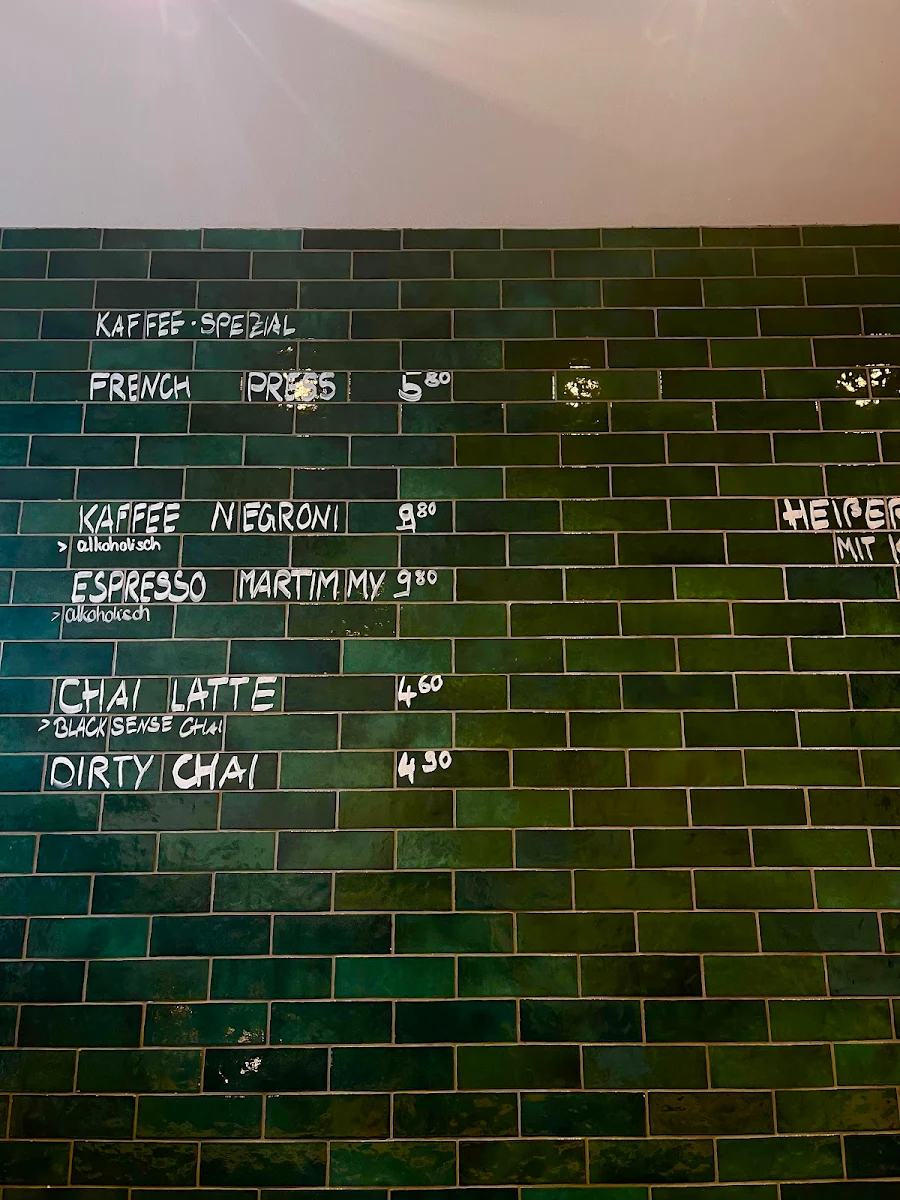 KAFFEE·SPEZIAL
FRENCH PRESS 5 80
KAFFEE NEGRONI 9 80
> alkoholisch
ESPRESSO MARTIMMY 9 80
> alkoholisch
CHAI LATTE 4 60
> BLACK SENSE CHAI
DIRTY CHAI 4 90
HEIßER
MIT